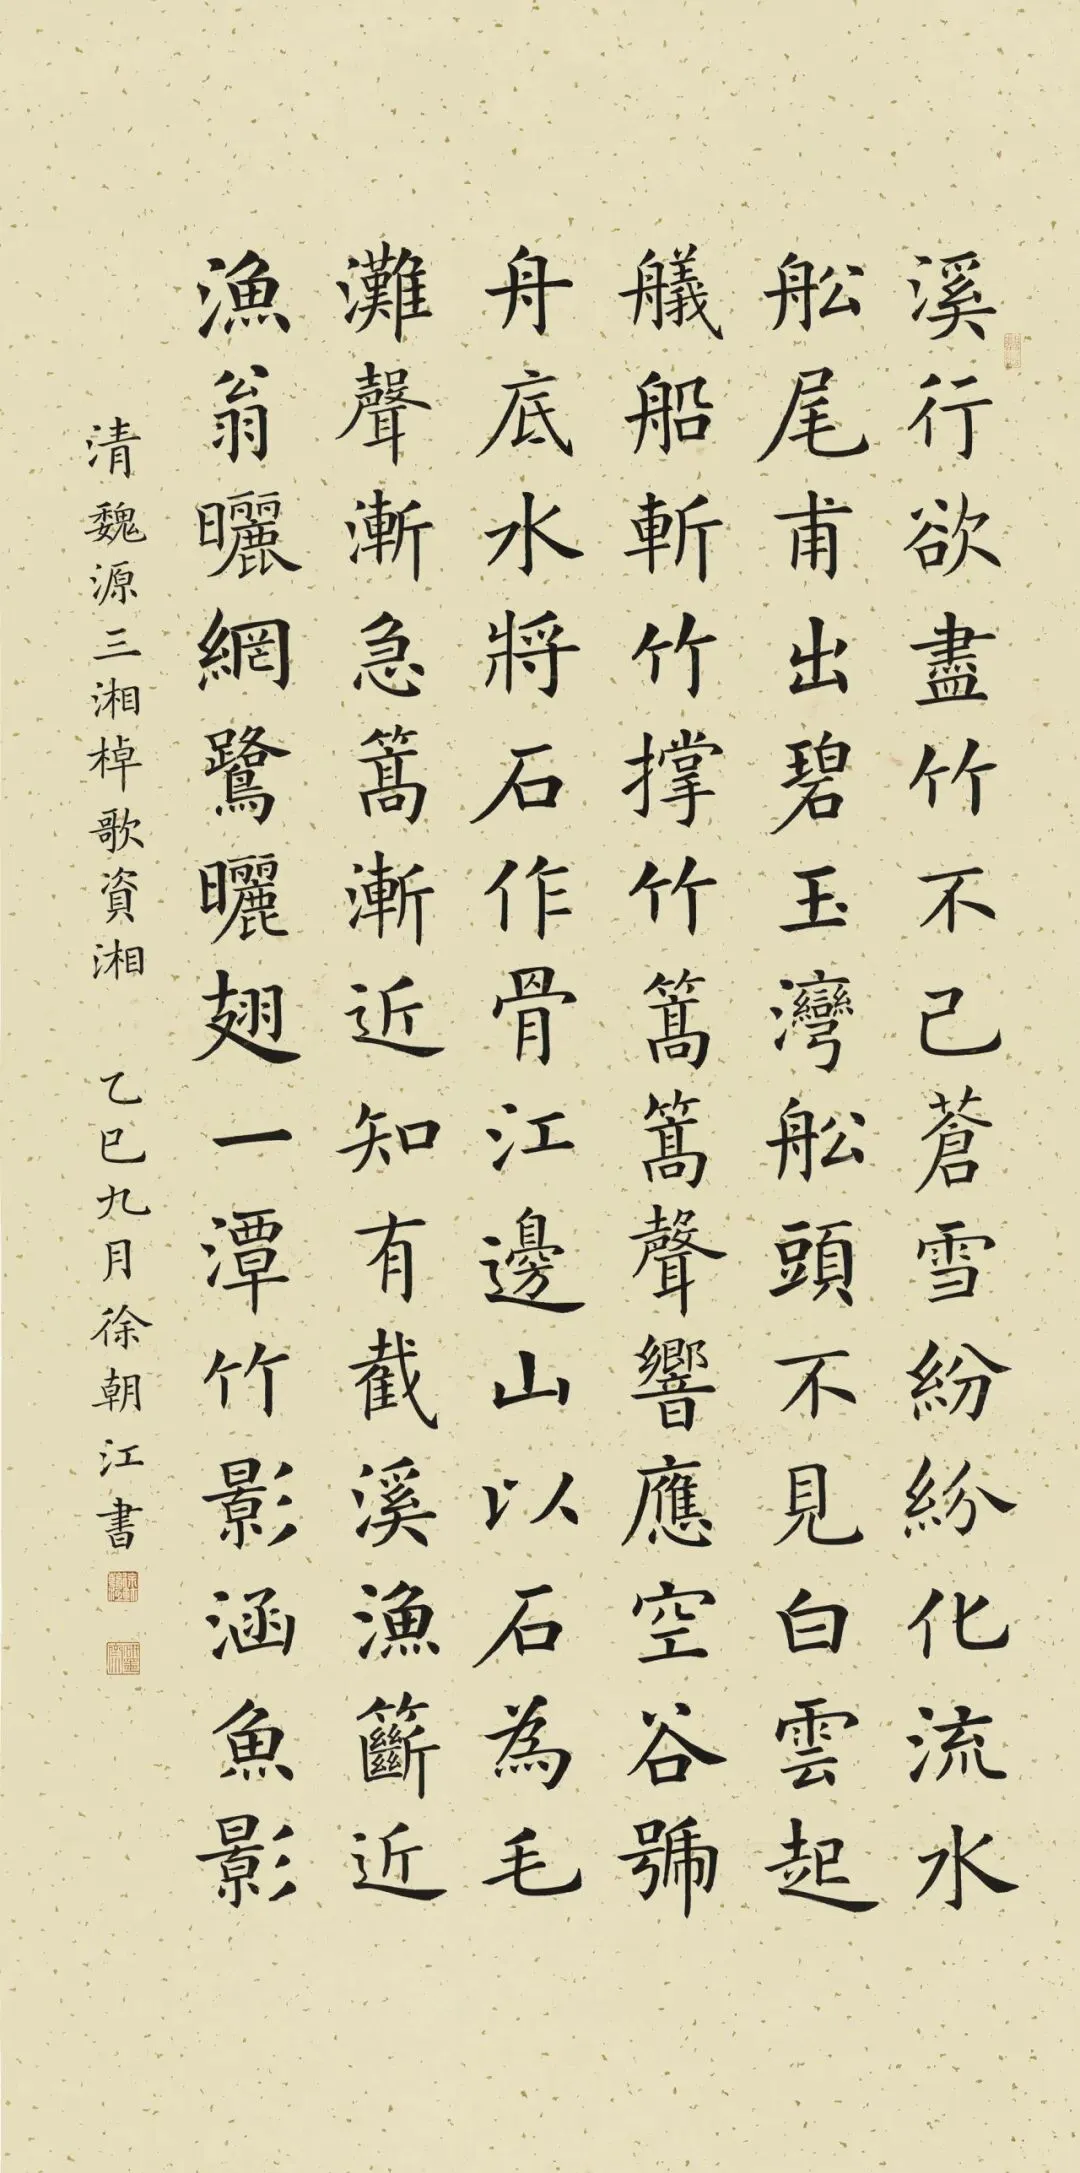 溪行欲盡竹不已蒼雪紛紛化流水
舩尾甫出碧玉灣舩頭不見白雲起
艤船斬竹撐竹篙篙聲響應空谷號
舟底水將石作骨江邊山以石為毛
灘聲漸急篙漸近知有截溪漁籪近
漁翁曬網鷺曬翅一潭竹影涵魚影
清魏源三湘棹歌資湘 乙巳九月徐朝江書